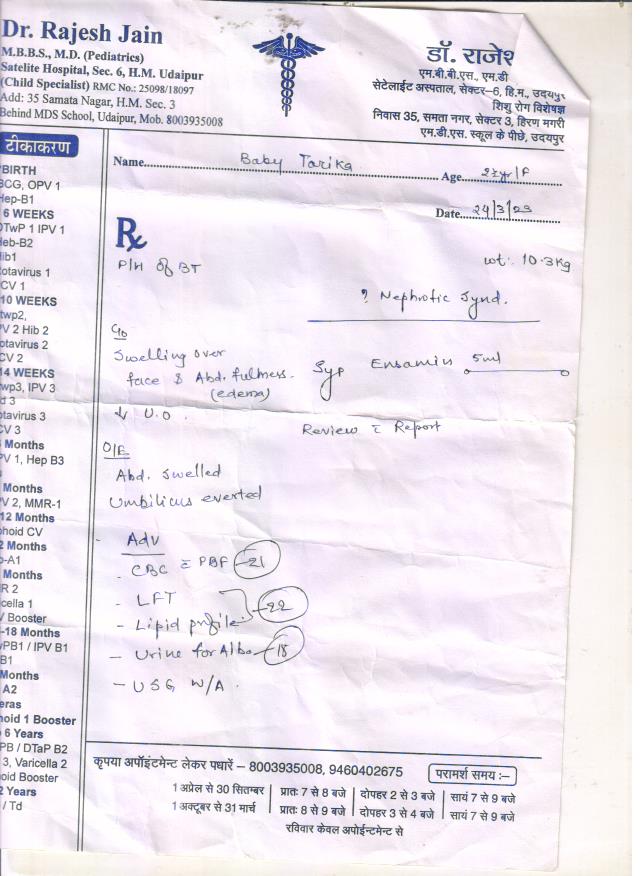 Dr. Rajesh Jain
M.B.B.S., M.D. (Pediatrics)
Satelite Hospital, Sec. 6, H.M. Udaipur
(Child Specialist) RMC No.: 25098/18097
Add: 35 Samata Nagar, H.M. Sec. 3
Behind MDS School, Udaipur, Mob. 8003935008
डॉ. राजेश
एम.बी.बी.एस., एम.डी
सेटेलाईट अस्पताल, सेक्टर–6, हि.म., उदयपुर
शिशु रोग विशेषज्ञ
निवास 35, समता नगर, सेक्टर 3, हिरण मगरी
एम.डी.एस. स्कूल के पीछे, उदयपुर
टीकाकरण
BIRTH
BCG, OPV 1
Hep-B1
6 WEEKS
DTwP 1 IPV 1
Heb-B2
Hib1
otavirus 1
CV 1
10 WEEKS
twp2,
V 2 Hib 2
otavirus 2
CV 2
14 WEEKS
wp3, IPV 3
d 3
otavirus 3
CV 3
Months
V 1, Hep B3
Months
V 2, MMR-1
12 Months
hoid CV
2 Months
p-A1
Months
R 2
icella 1
/ Booster
-18 Months
PB1 / IPV B1
B1
Months
A2
eras
oid 1 Booster
6 Years
PB / DTaP B2
3, Varicella 2
oid Booster
2 Years
/ Td
Name Baby Tarika Age 2½yr/F
Date 24/3/23
Rx
P/H of BT
wt: 10.3Kg
? Nephrotic Synd.
C/o
Swelling over
face & Abd. fullness.
(edema)
↓ U.O.
Syp Ensamin 5ml
Review c̄ Report
O/E
Abd. swelled
Umbilicus everted
- Adv
- CBC c̄ PBF -21
- LFT
- Lipid profile -22
- Urine for Albu -18
- USG W/A.
कृपया अपॉइंटमेन्ट लेकर पधारें – 8003935008, 9460402675
परामर्श समय :–
1 अप्रेल से 30 सितम्बर | प्रातः 7 से 8 बजे | दोपहर 2 से 3 बजे | सायं 7 से 9 बजे
1 अक्टूबर से 31 मार्च | प्रातः 8 से 9 बजे | दोपहर 3 से 4 बजे | सायं 7 से 9 बजे
रविवार केवल अपोईन्टमेन्ट से